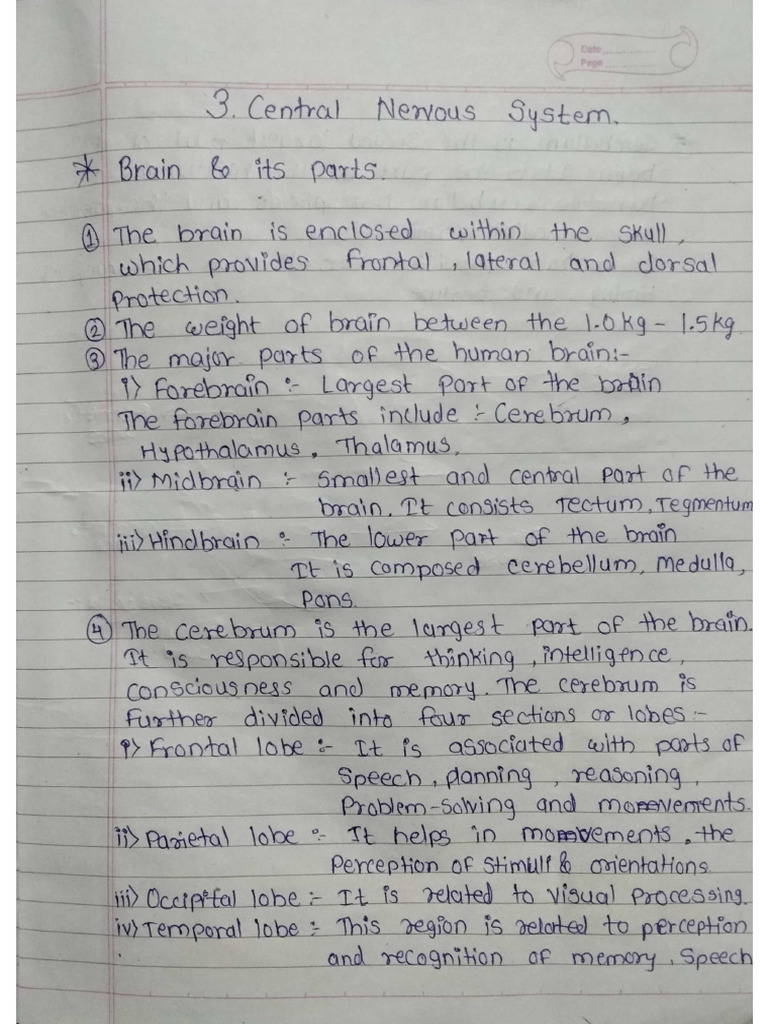 Date
Page
3. Central Nervous System.
* Brain & its parts.
① The brain is enclosed within the skull,
which provides frontal, lateral and dorsal
protection.
② The weight of brain between the 1.0kg - 1.5kg
③ The major parts of the human brain:-
i) Forebrain :- Largest part of the brain
The forebrain parts include :- Cerebrum,
Hypothalamus, Thalamus,
ii) Midbrain :- Smallest and central part of the
brain. It consists Tectum, Tegmentum
iii) Hindbrain :- The lower part of the brain
It is composed cerebellum, Medulla,
Pons.
④ The cerebrum is the largest part of the brain.
It is responsible for thinking, intelligence,
consciousness and memory. The cerebrum is
further divided into four sections or lobes :-
i) Frontal lobe :- It is associated with parts of
Speech, planning, reasoning,
Problem-solving and movements.
ii) Parietal lobe :- It helps in movements, the
Perception of stimuli & orientations
iii) Occipital lobe :- It is related to visual processing.
iv) Temporal lobe :- This region is related to perception
and recognition of memory, speech